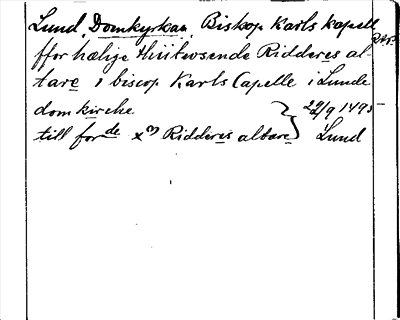 Lund, Domkyrkan, Biskop Karls kapell
ffor hælige Thiitwsende Ridderes al-
tare i biscop Karls Capelle i Lunde
domkirche 29/9 1495
till for de x m Ridderes altare Lund